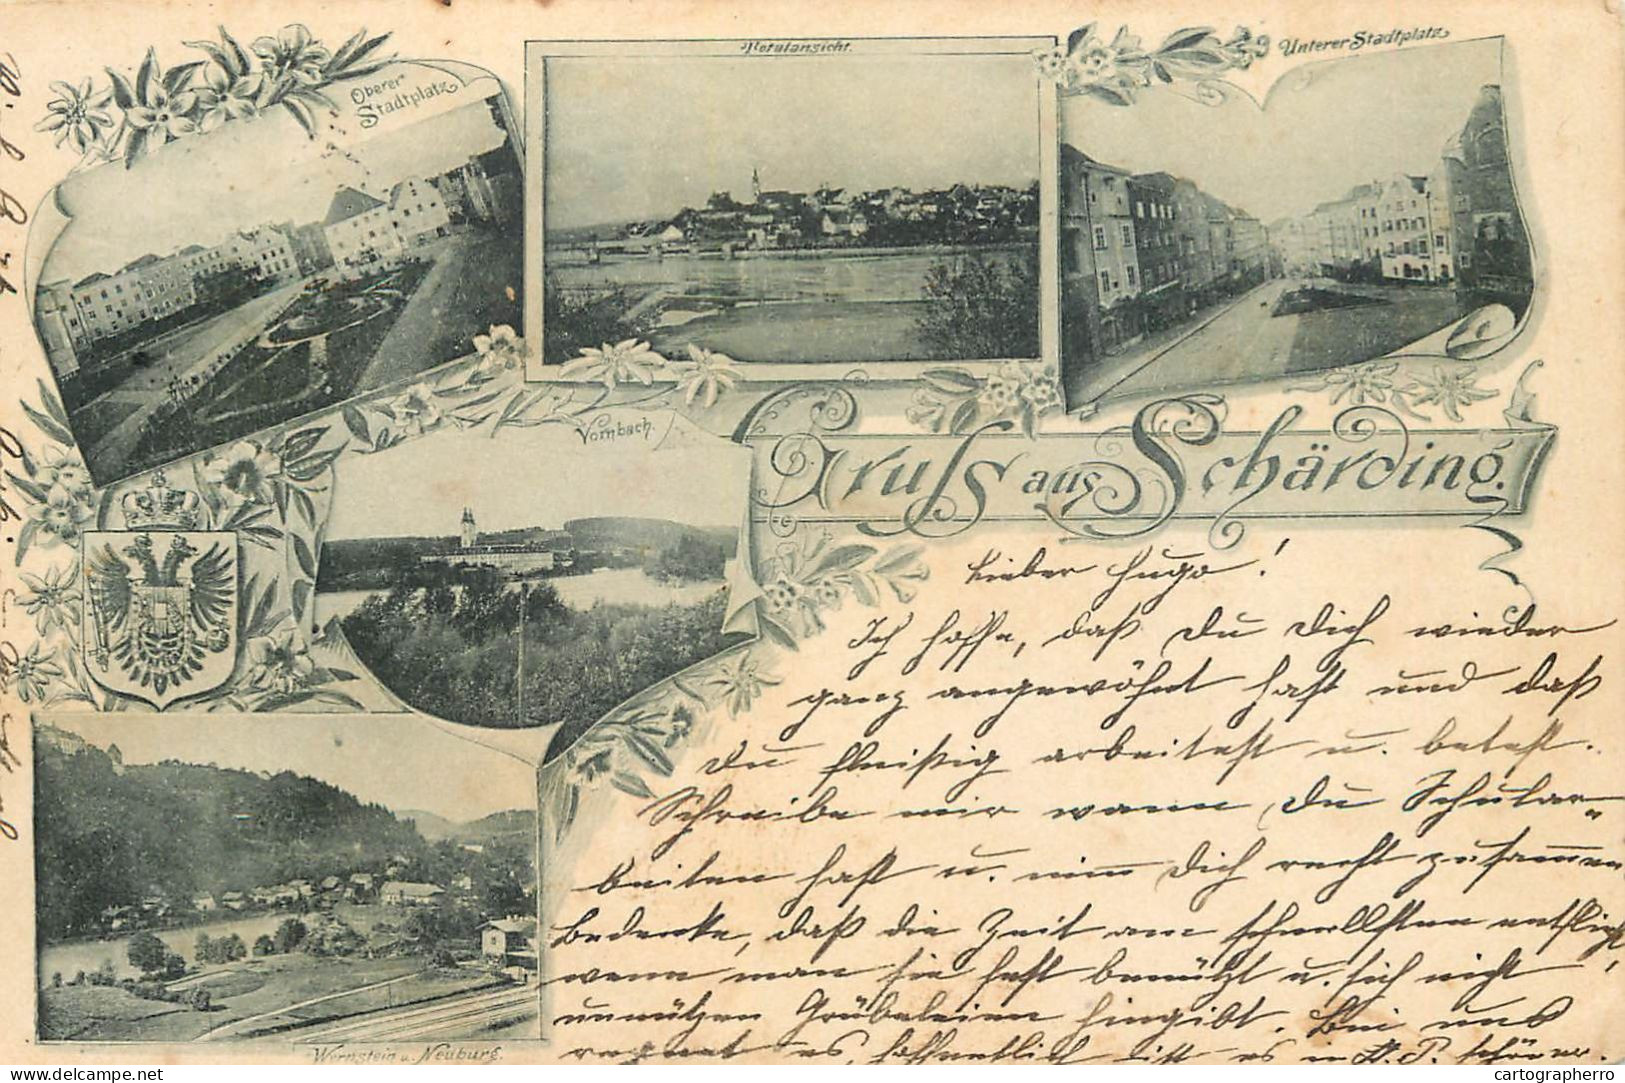 Oberer
Stadtplatz
Totalansicht.
Unterer Stadtplatz
Vornbach.
Gruss aus Schärding.
Wernstein u. Neuburg.
Lieber Hugo!
Ich hoffe, daß Du Dich wieder
ganz angewöhnt hast und daß
Du fleißig arbeitest u. betest.
Schreibe mir wann Du Schular-
beiten hast u. nimm Dich recht zusammen
Bedenke, daß die Zeit am schnellsten entflieht,
wenn man sie fest benützt u. sich nicht
unnützen Grübeleien hingibt. Bei uns
regnet es, hoffentlich ist es in St. P. schöner.
cartographerro
© www.delcampe.net